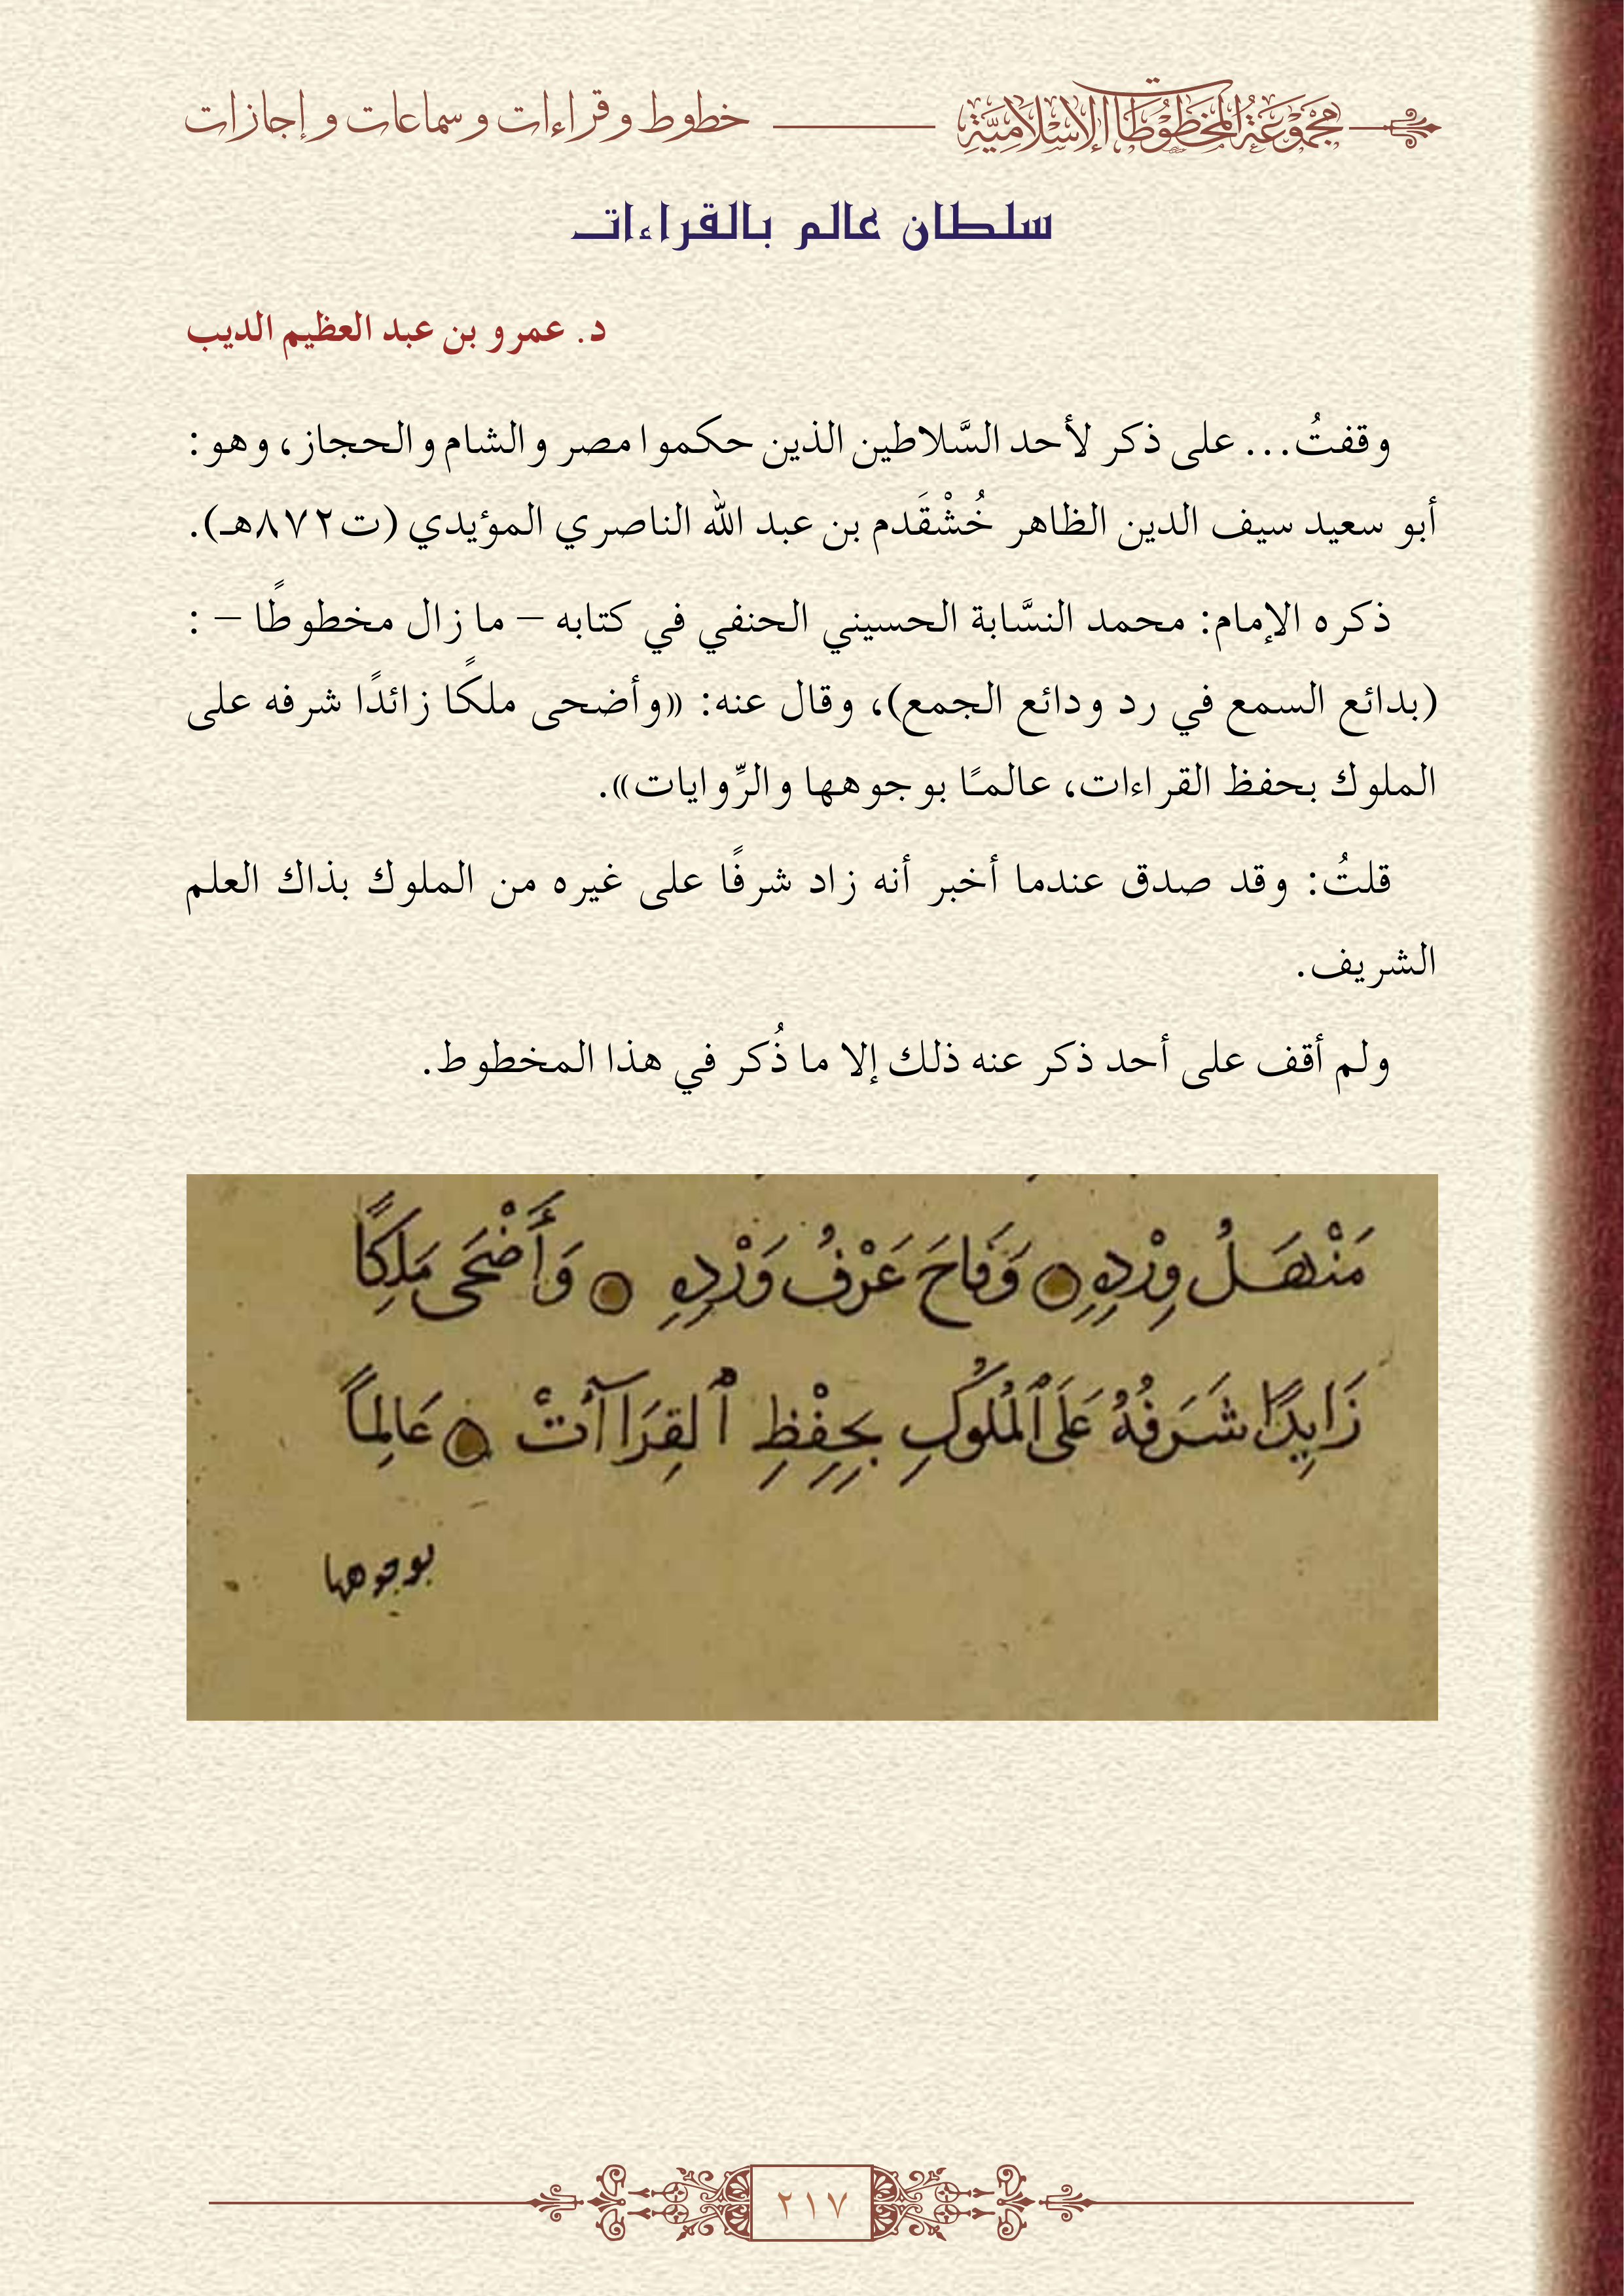 مَجْمُوْعَةُ المَخْطُوْطَاتِ الإِسْلَامِيَّةِ
خطوط وقراءات وسماعات وإجازات
سلطان عالم بالقراءات
د. عمرو بن عبد العظيم الديب
وقفتُ... على ذكر لأحد السَّلاطين الذين حكموا مصر والشام والحجاز، وهو:
أبو سعيد سيف الدين الظاهر خُشْقَدم بن عبد الله الناصري المؤيدي (ت٨٧٢هـ).
ذكره الإمام: محمد النسَّابة الحسيني الحنفي في كتابه – ما زال مخطوطًا – :
(بدائع السمع في رد ودائع الجمع)، وقال عنه: «وأضحى ملكًا زائدًا شرفه على
الملوك بحفظ القراءات، عالمـًا بوجوهها والرِّوايات».
قلتُ: وقد صدق عندما أخبر أنه زاد شرفًا على غيره من الملوك بذاك العلم
الشريف.
ولم أقف على أحد ذكر عنه ذلك إلا ما ذُكر في هذا المخطوط.
مَنْهَلُ وِرْدِهِ وَفَاحَ عَرْفُ وَرْدِهِ وَأَضْحَى مَلِكًا
زَايِدًا شَرَفُهُ عَلَى ٱلْمُلُوكِ بِحِفْظِ ٱلقِرَاآتْ عَالِمًا
بوجوهها
٢١٧